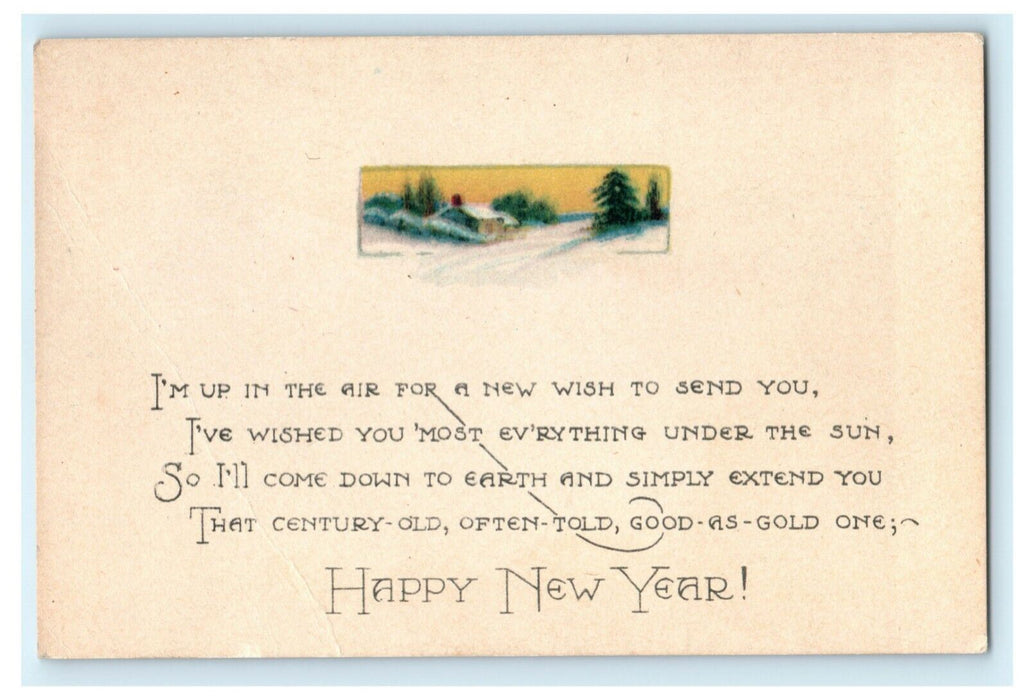 I'm up in the air for a new wish to send you,
I've wished you 'most ev'rything under the sun,
So I'll come down to earth and simply extend you
That century-old, often-told, good-as-gold one;~
Happy New Year!